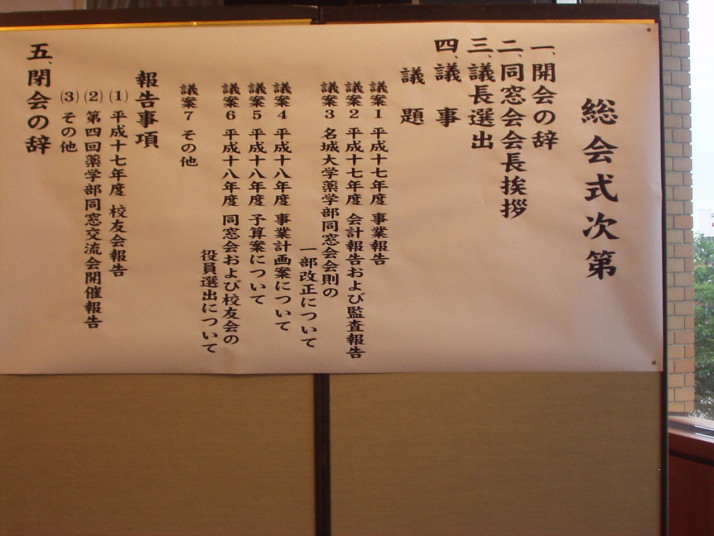 総会式次第
一、開会の辞
二、同窓会会長挨拶
三、議長選出
四、議事
議題
議案1 平成十七年度 事業報告
議案2 平成十七年度 会計報告および監査報告
議案3 名城大学薬学部同窓会会則の
一部改正について
議案4 平成十八年度 事業計画案について
議案5 平成十八年度 予算案について
議案6 平成十八年度 同窓会および校友会の
役員選出について
議案7 その他
報告事項
(1) 平成十七年度 校友会報告
(2) 第四回薬学部同窓交流会開催報告
(3) その他
五、閉会の辞